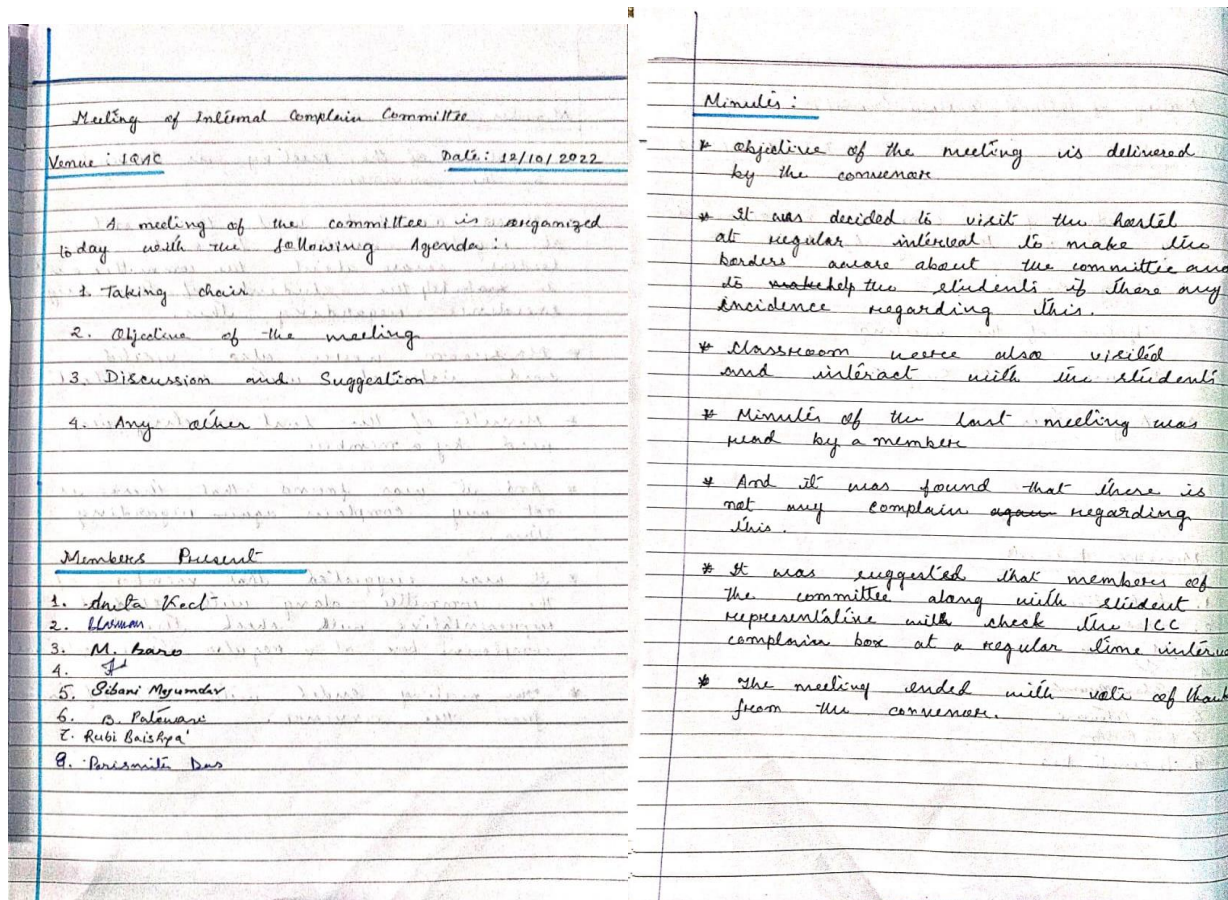 Meeting of Internal Complain Committee
Venue : IQAC Date : 12/10/2022
A meeting of the committee is organized
today with the following Agenda :
1. Taking chair
2. Objective of the meeting
3. Discussion and Suggestion
4. Any other
Members Present
1. Anita
2.
3. M. Baro
4.
5. Sibani Mojumdar
6. B. Patowari
7. Rubi Baishya
8. Parismita Das
Minutes :
* Objective of the meeting is delivered
by the convenor
* It was decided to visit the hostel
at regular interval to make the
borders aware about the committee and
to make help the students if there any
incidence regarding this.
* Classroom were also visited
and interact with the students
* Minutes of the last meeting was
read by a member
* And it was found that there is
not any complain again regarding
this.
* It was suggested that members of
the committee along with student
representative will check the ICC
complain box at a regular time interva
* The meeting ended with vote of thank
from the convenor.